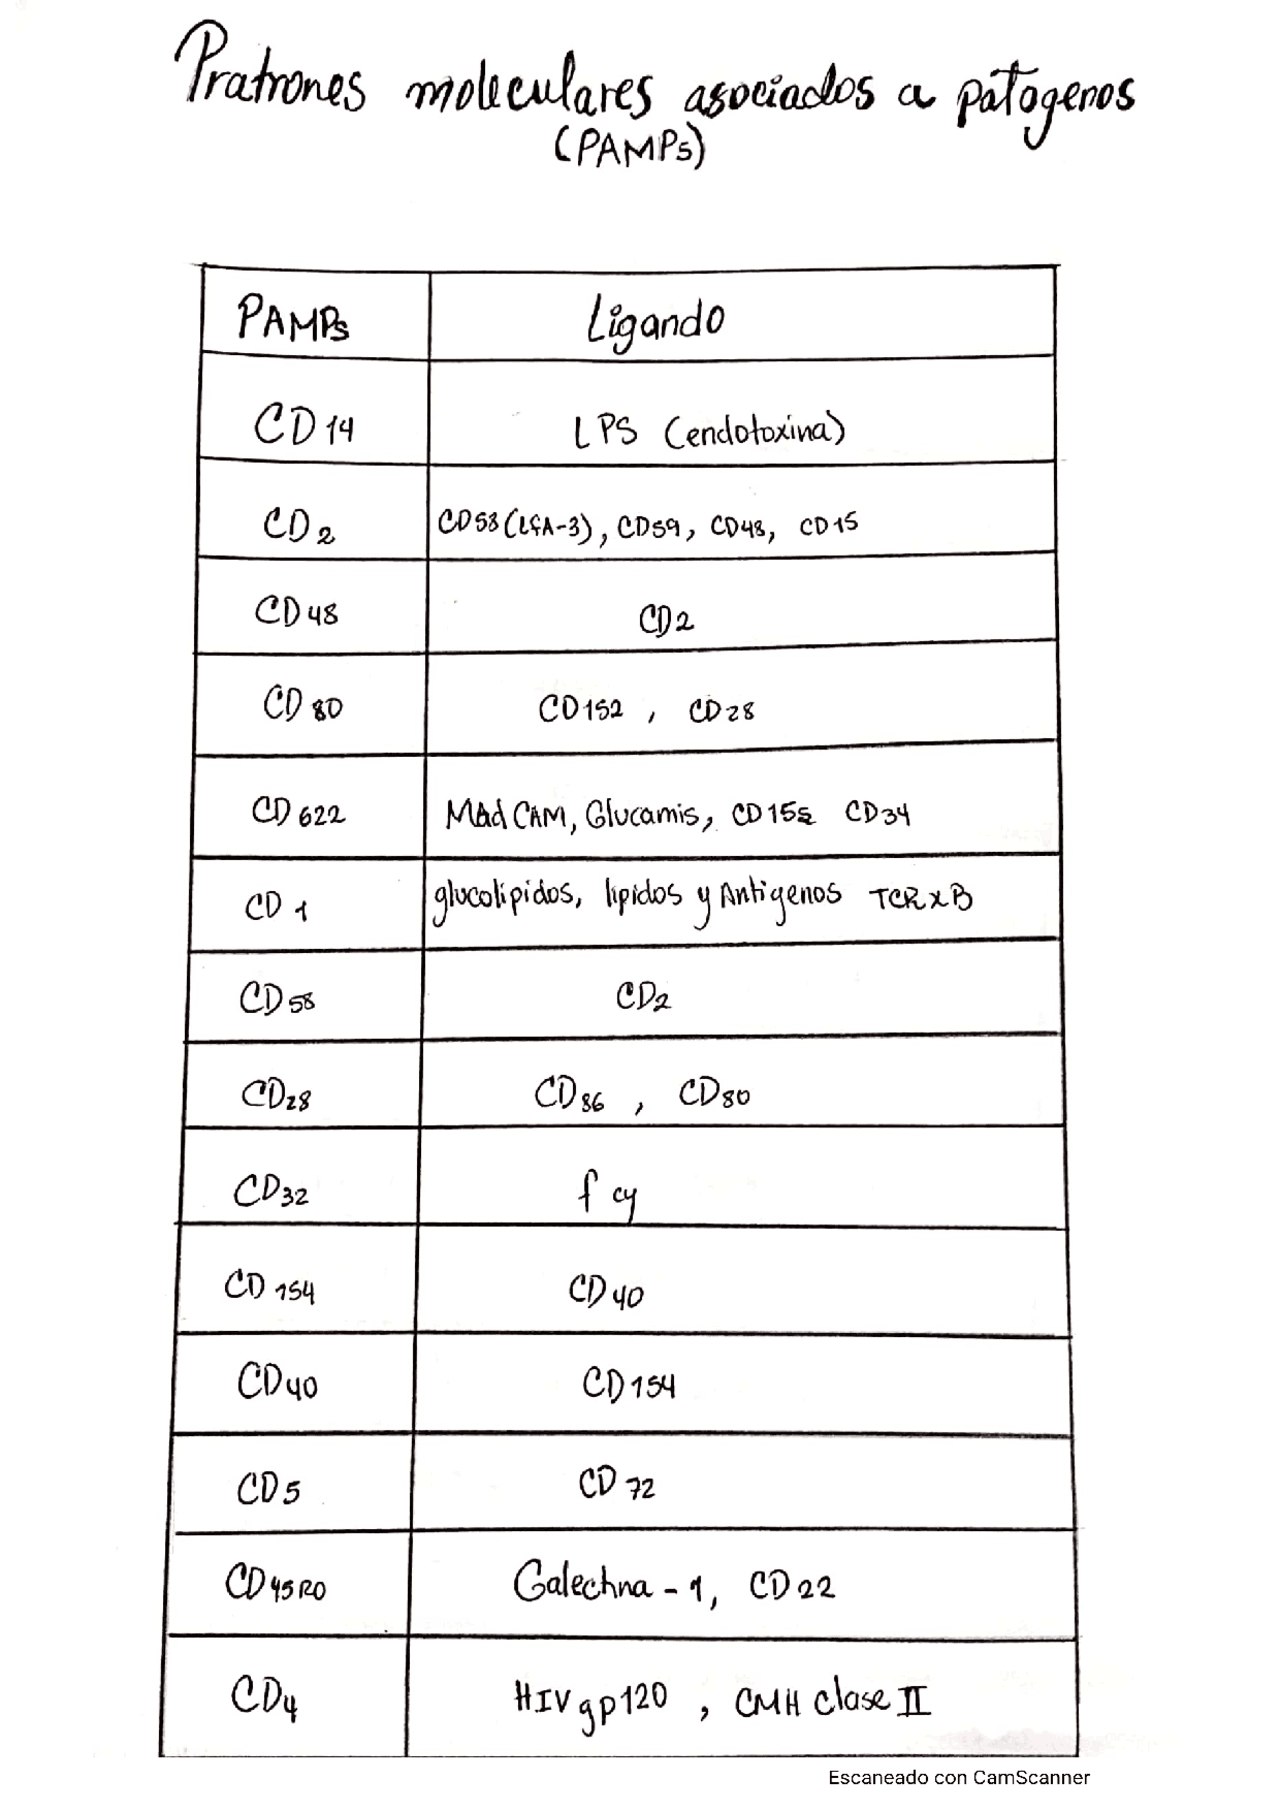 Pratrones moleculares asociados a patogenos
(PAMPs)
PAMPs Ligando
CD14 LPS (endotoxina)
CD2 CD58 (LFA-3), CD59, CD48, CD15
CD48 CD2
CD80 CD152 , CD28
CD622 MAdCAM, Glucamis, CD15s CD34
CD1 glucolipidos, lipidos y Antigenos TCRxB
CD58 CD2
CD28 CD86 , CD80
CD32 fcy
CD154 CD40
CD40 CD154
CD5 CD72
CD45RO Galechna-1, CD22
CD4 HIVgp120 , CMH clase II
Escaneado con CamScanner